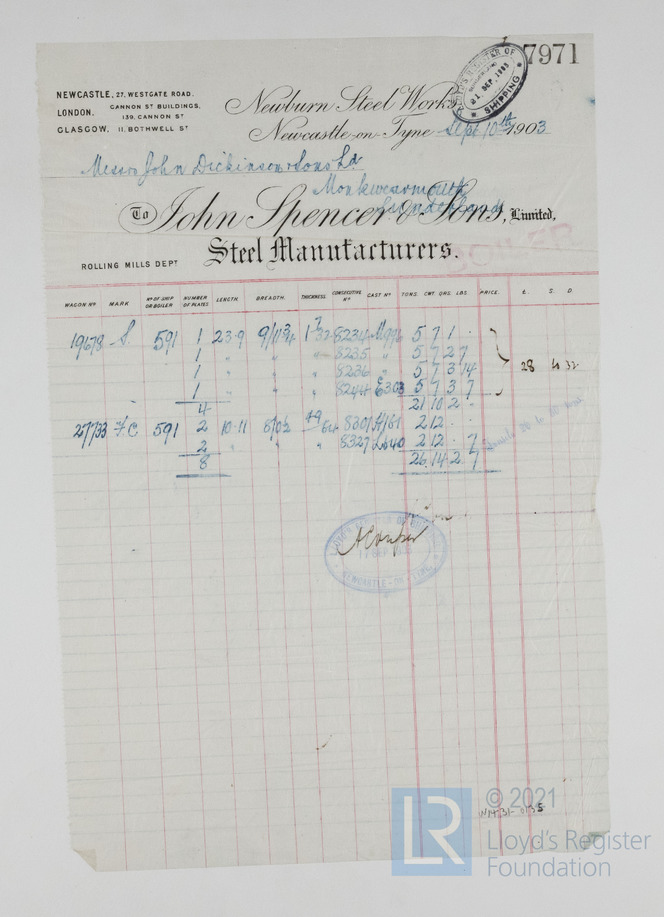 7971
LLOYD'S REGISTER OF SHIPPING 21 SEP. 1903
NEWCASTLE, 27, WESTGATE ROAD.
LONDON. CANNON ST BUILDINGS, 139, CANNON ST
GLASGOW, 11, BOTHWELL ST
Newburn Steel Works
Newcastle-on-Tyne Sept 10th 1903
Messrs John Dickinson & Sons Ld
Monkwearmouth
Sunderland
To John Spencer & Sons, Limited,
Steel Manufacturers.
BOILER
ROLLING MILLS DEPT
WAGON No. MARK No OF SHIP OR BOILER NUMBER OF PLATES LENGTH. BREADTH. THICKNESS CONSECUTIVE No CAST No TONS. CWT. QRS. LBS. PRICE. £. S. D.
19678 S. 591 1 23-9 8234 5 7 1 -
1 " " " 8235 " 5 7 2 7
1 " " " 8236 " 5 7 3 14 28
1 " " " 8244 E303 5 7 3 7
4 21 10 2 -
27733 F.C 591 2 10-11 49/64 8301 2 12 - -
2 " " " 8327 2 12 - 7
8 26 14 2 7
NEWCASTLE-ON-TYNE
© 2021
LR
Lloyd's Register
Foundation